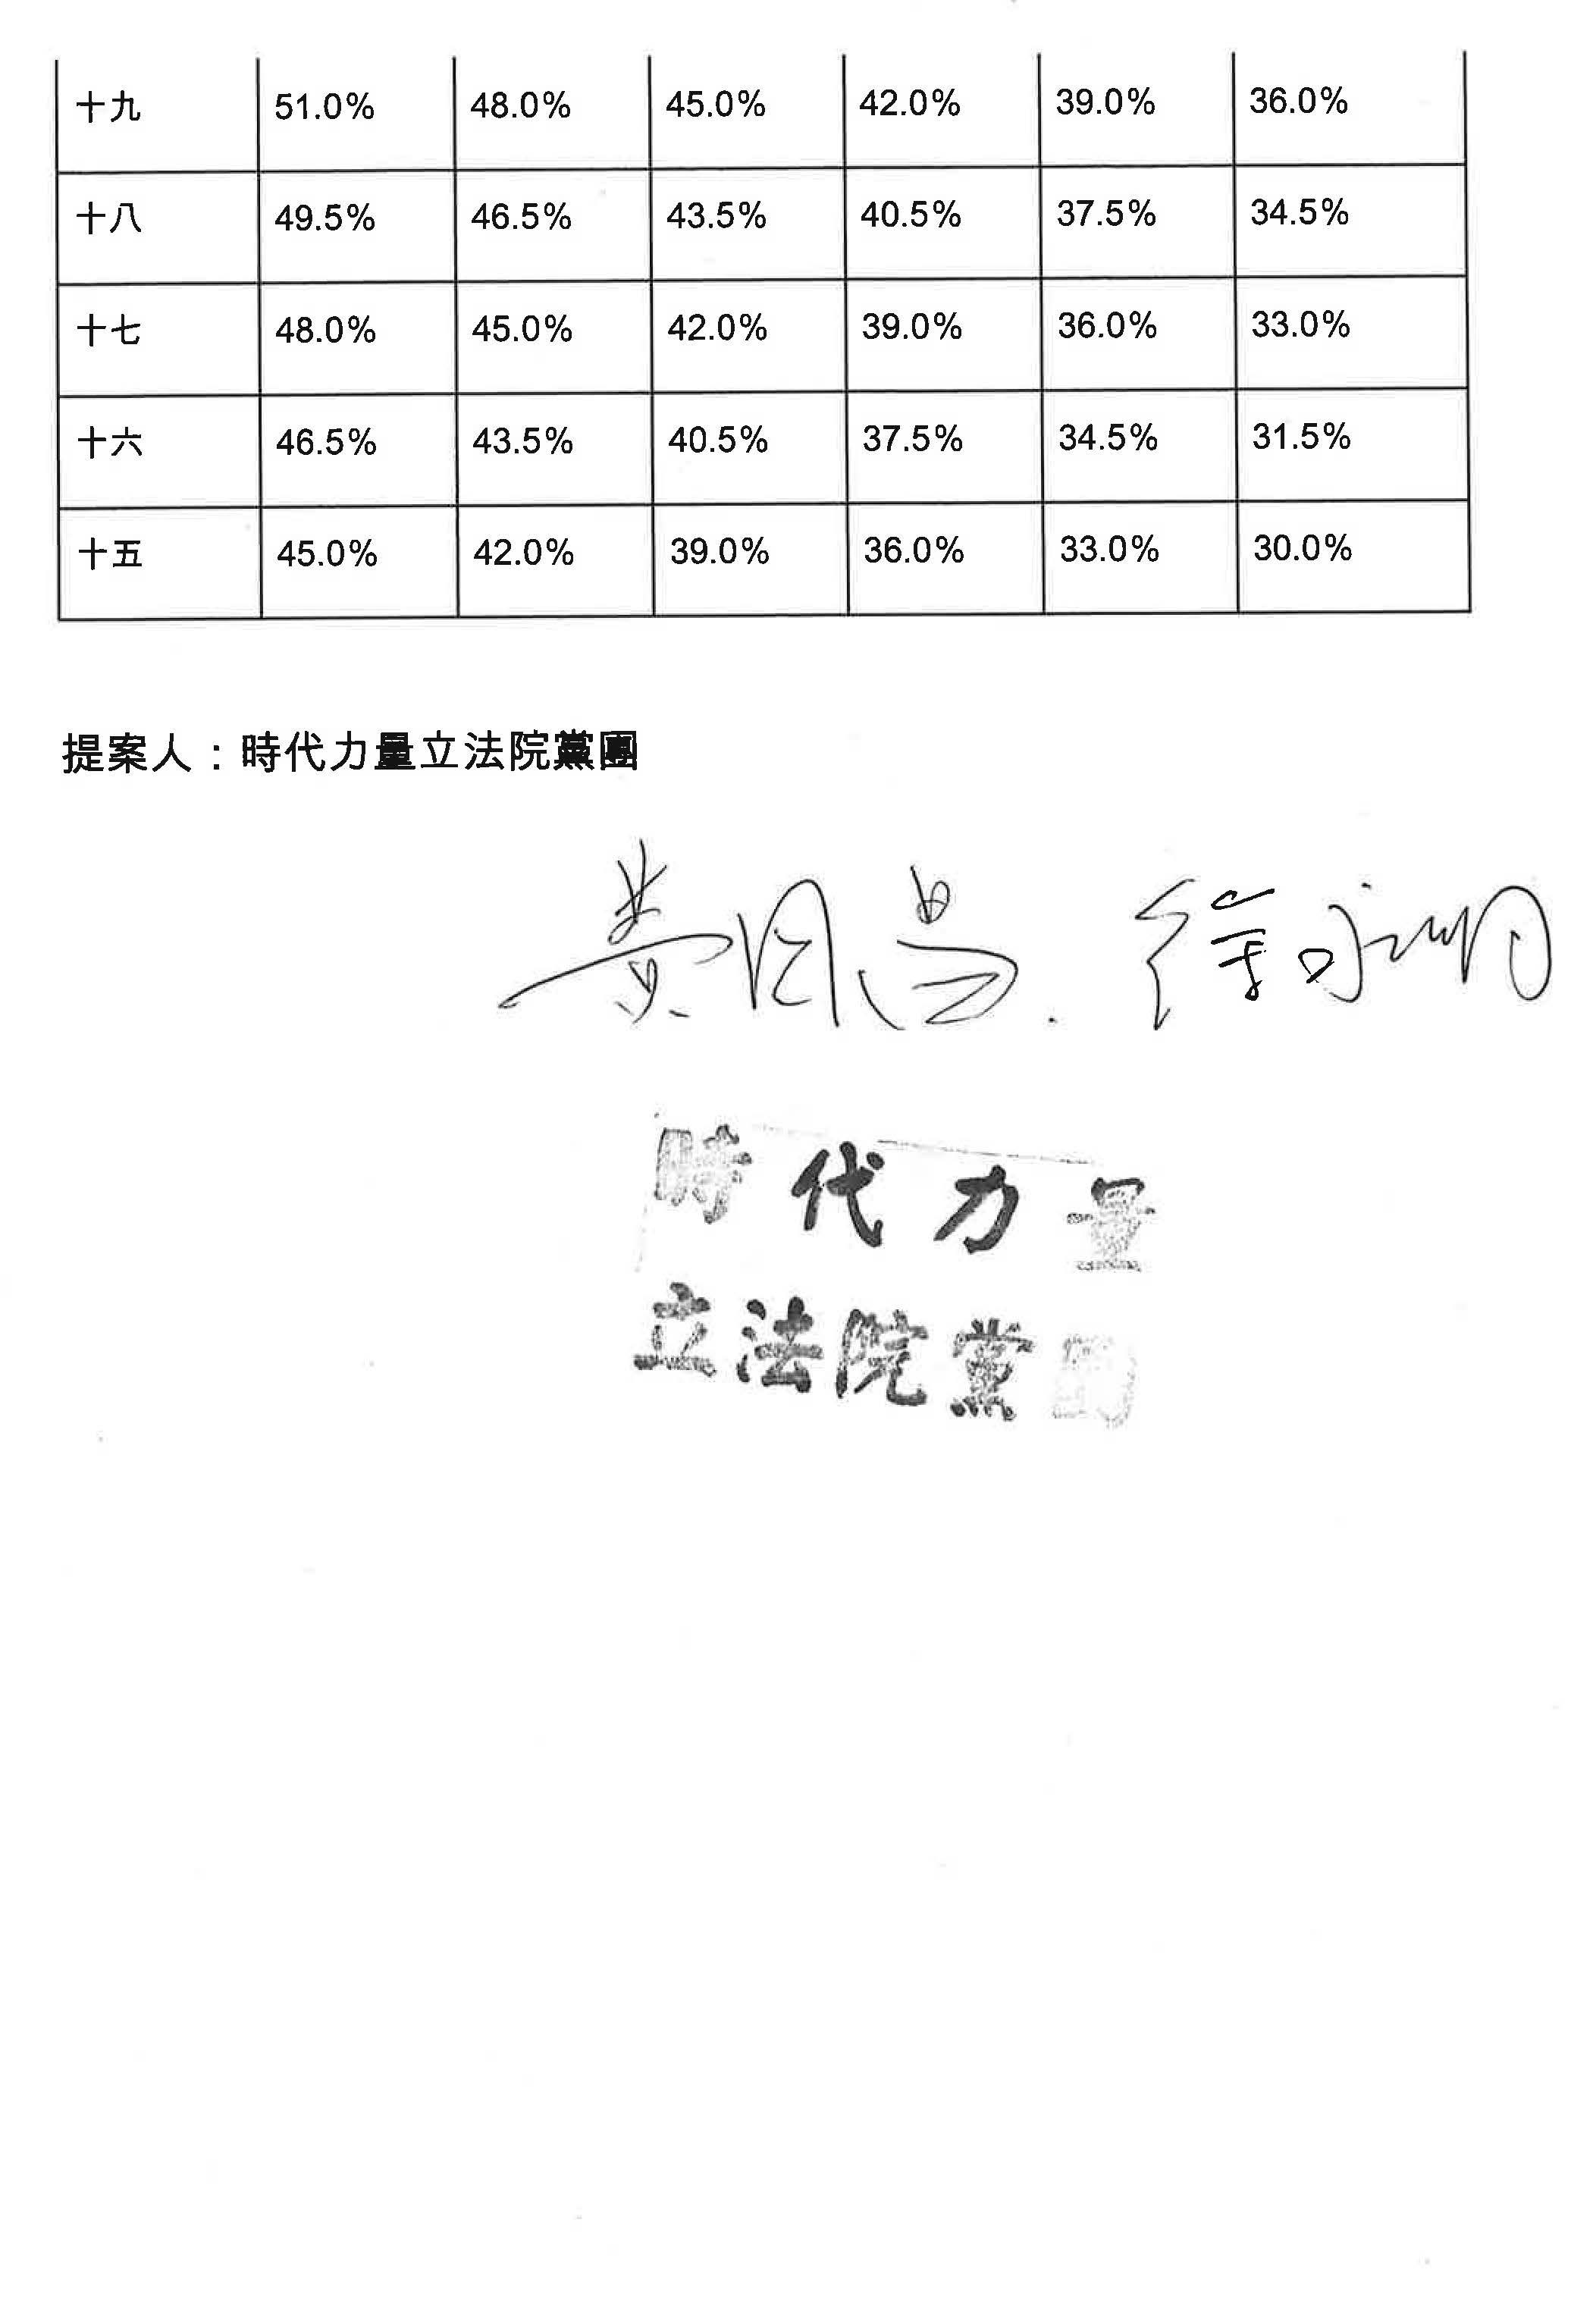 十九 51.0% 48.0% 45.0% 42.0% 39.0% 36.0%
十八 49.5% 46.5% 43.5% 40.5% 37.5% 34.5%
十七 48.0% 45.0% 42.0% 39.0% 36.0% 33.0%
十六 46.5% 43.5% 40.5% 37.5% 34.5% 31.5%
十五 45.0% 42.0% 39.0% 36.0% 33.0% 30.0%
提案人：時代力量立法院黨團
黃國昌. 徐永明
時代力量
立法院黨團